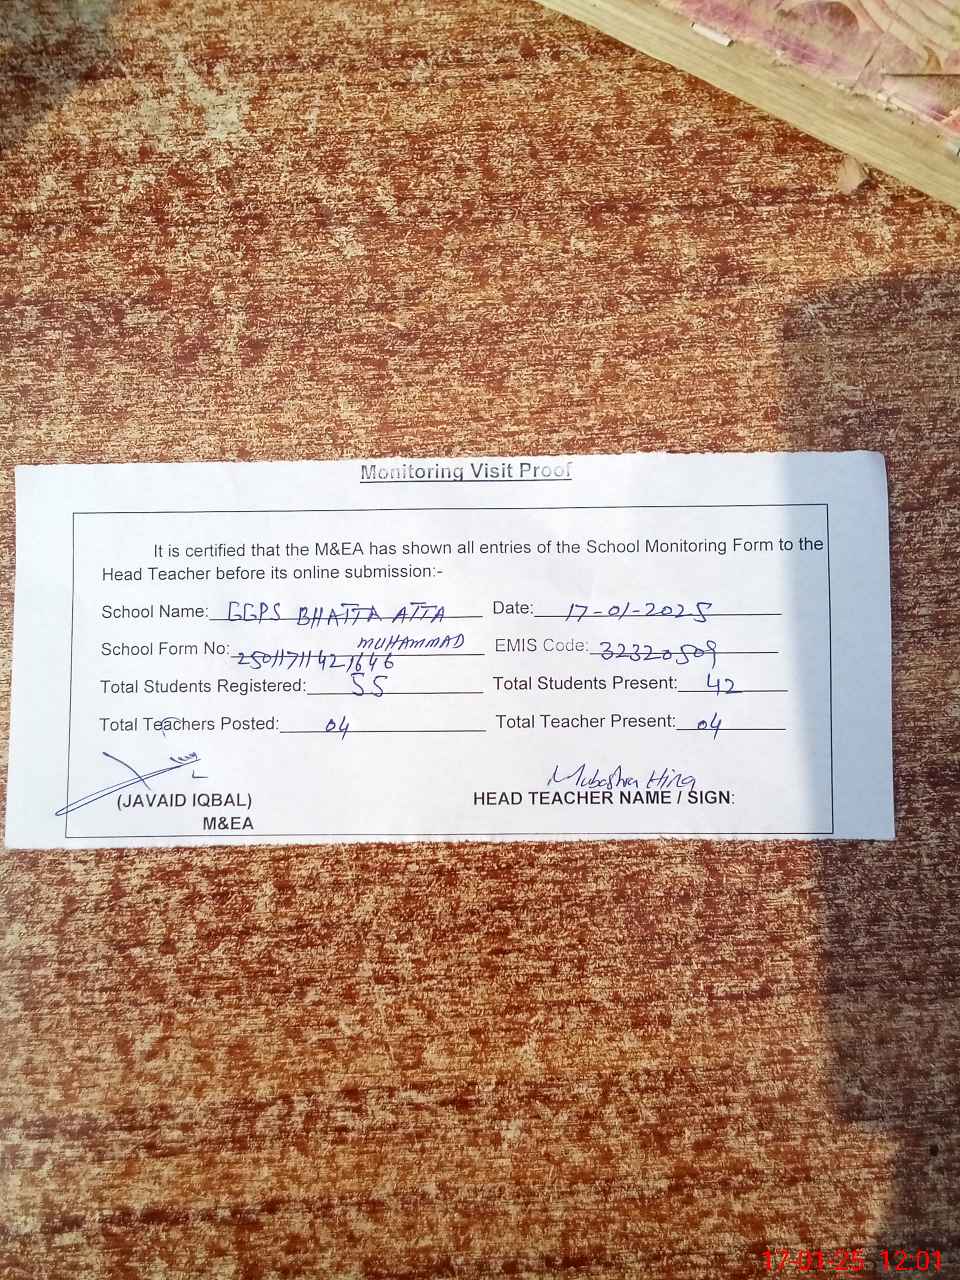 Monitoring Visit Proof
It is certified that the M&EA has shown all entries of the School Monitoring Form to the
Head Teacher before its online submission:-
School Name: GGPS BHATTA ATTA MUHAMMAD Date: 17-01-2025
School Form No: 25011711421646 EMIS Code: 32320509
Total Students Registered: 55 Total Students Present: 42
Total Teachers Posted: 04 Total Teacher Present: 04
Mubashra Hina
(JAVAID IQBAL) HEAD TEACHER NAME / SIGN:
M&EA
17-01-25 12:01